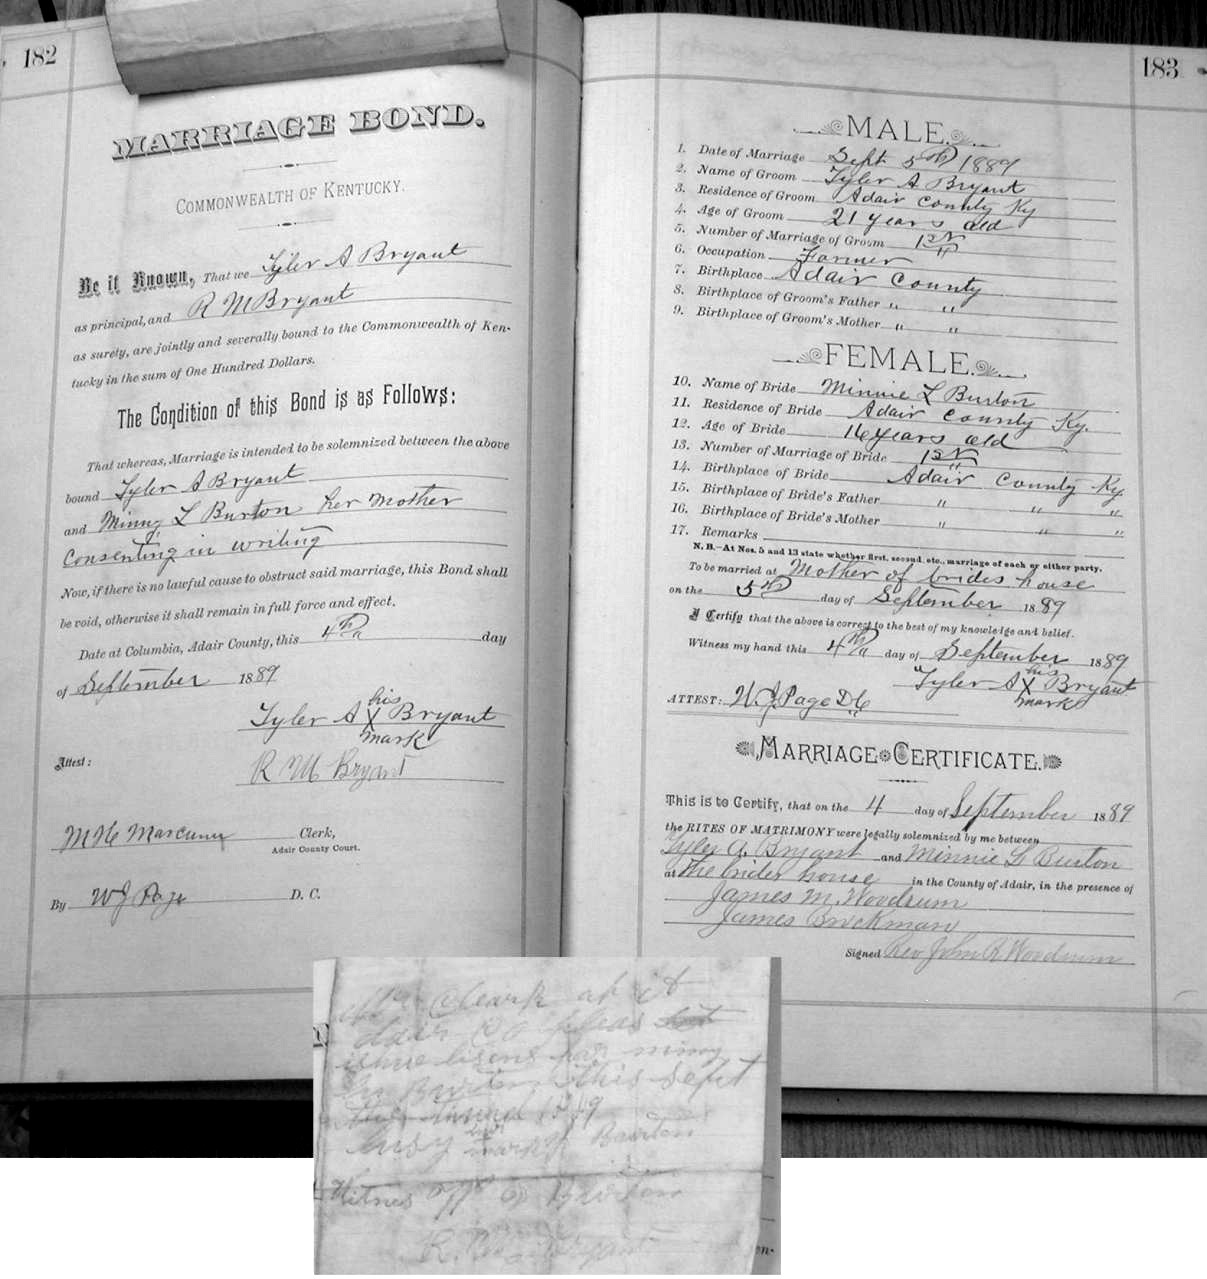 182
MARRIAGE BOND.
COMMONWEALTH OF KENTUCKY.
Be it Known, That we Tyler A Bryant
as principal, and R M Bryant
as surety, are jointly and severally bound to the Commonwealth of Ken-
tucky in the sum of One Hundred Dollars.
The Condition of this Bond is as Follows:
That whereas, Marriage is intended to be solemnized between the above
bound Tyler A Bryant
and Minny L Burton her mother
Consenting in writing
Now, if there is no lawful cause to obstruct said marriage, this Bond shall
be void, otherwise it shall remain in full force and effect.
Date at Columbia, Adair County, this 4th day
of September 1889
his
Tyler A X Bryant
mark
Attest:
R M Bryant
Clerk,
Adair County Court.
By W J Page D. C.
183
MALE.
1. Date of Marriage Sept 5th 1889
2. Name of Groom Tyler A Bryant
3. Residence of Groom Adair County Ky
4. Age of Groom 21 years old
5. Number of Marriage of Groom 1st
6. Occupation Farmer
7. Birthplace Adair County
8. Birthplace of Groom's Father " "
9. Birthplace of Groom's Mother " "
FEMALE.
10. Name of Bride Minnie L Burton
11. Residence of Bride Adair County Ky.
12. Age of Bride 16 years old
13. Number of Marriage of Bride 1st
14. Birthplace of Bride Adair County Ky.
15. Birthplace of Bride's Father " " "
16. Birthplace of Bride's Mother " " "
17. Remarks
N. B.—At Nos. 5 and 13 state whether first, second, etc., marriage of each or either party.
To be married at Mother of brides house
on the 5th day of September 1889
I Certify that the above is correct to the best of my knowledge and belief.
Witness my hand this 4th day of September 1889
his
Tyler A X Bryant
mark
ATTEST: W. J. Page DC
MARRIAGE CERTIFICATE.
This is to Certify, that on the 4 day of September 1889
the RITES OF MATRIMONY were legally solemnized by me between
Tyler A. Bryant and Minnie L Burton
at The brides house in the County of Adair, in the presence of
James M. Woodrum
James Brockman
Signed Rev John R Woodrum
Cleark of it
dair Co pleas
ishue lisens for minny
Burton this Sept
1889
Lusy mark Burton
Witnes Burton
Bryant